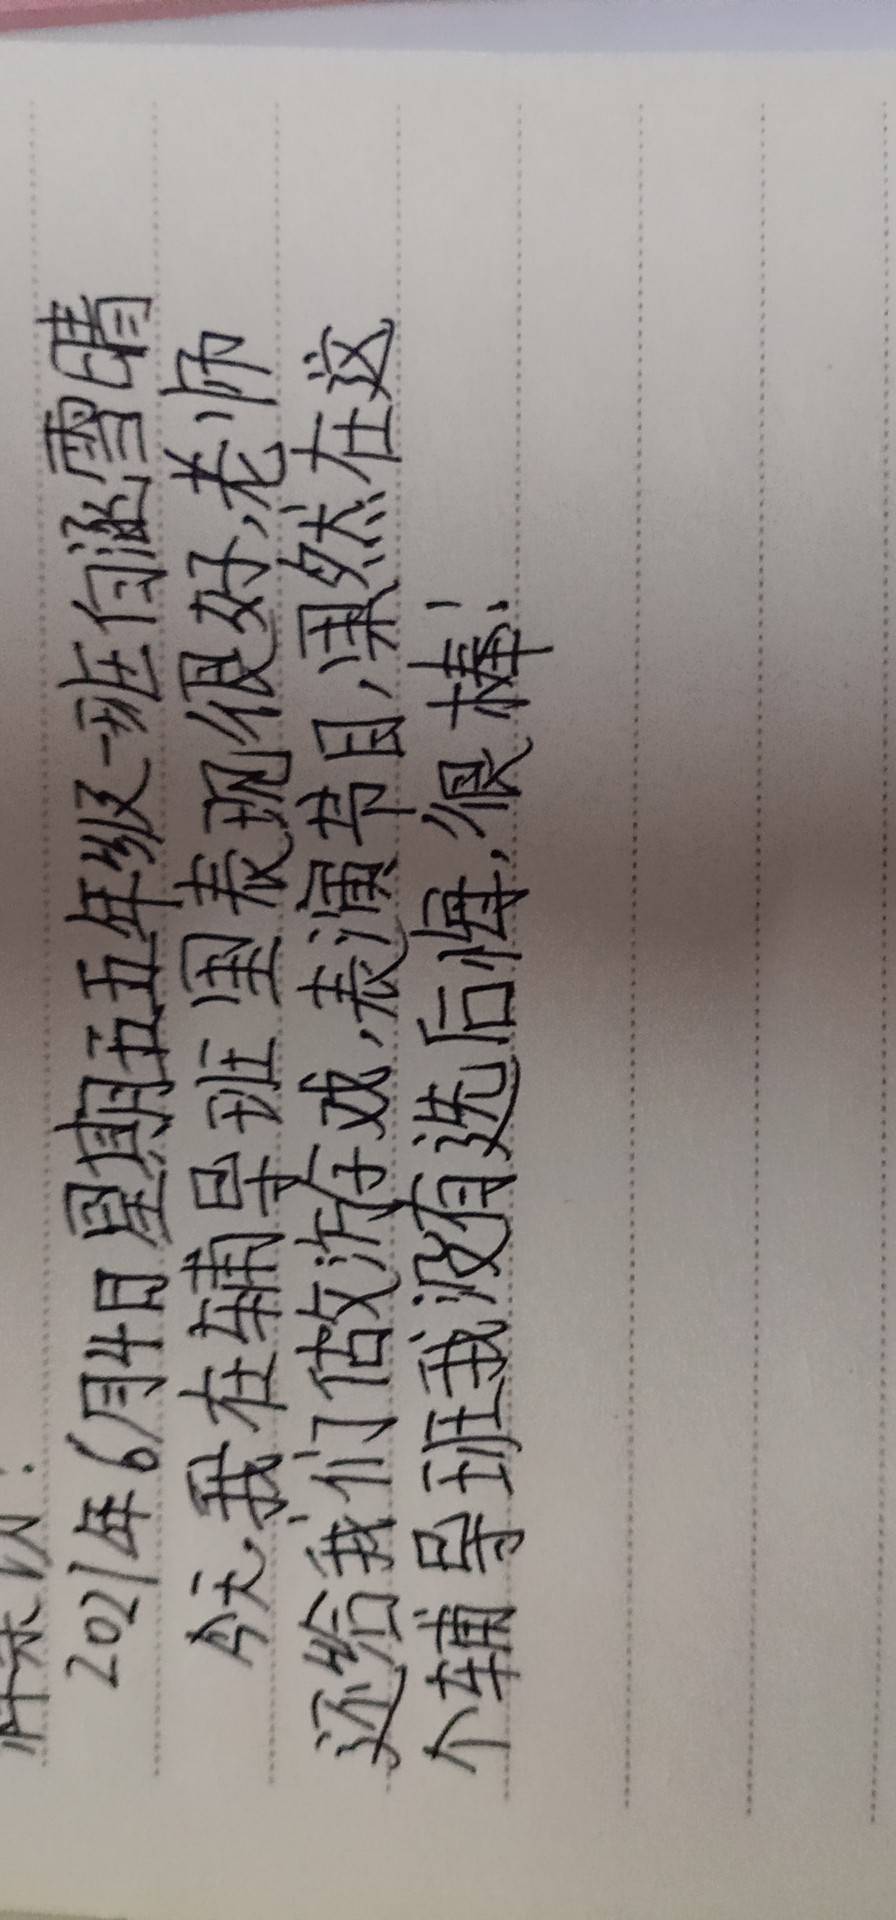 2021年6月4日星期五五年级一班付涵雪晴
今天,我在辅导班里表现很好,老师
还给我们做游戏,表演节目,果然在这
个辅导班我没有选后悔,很棒!